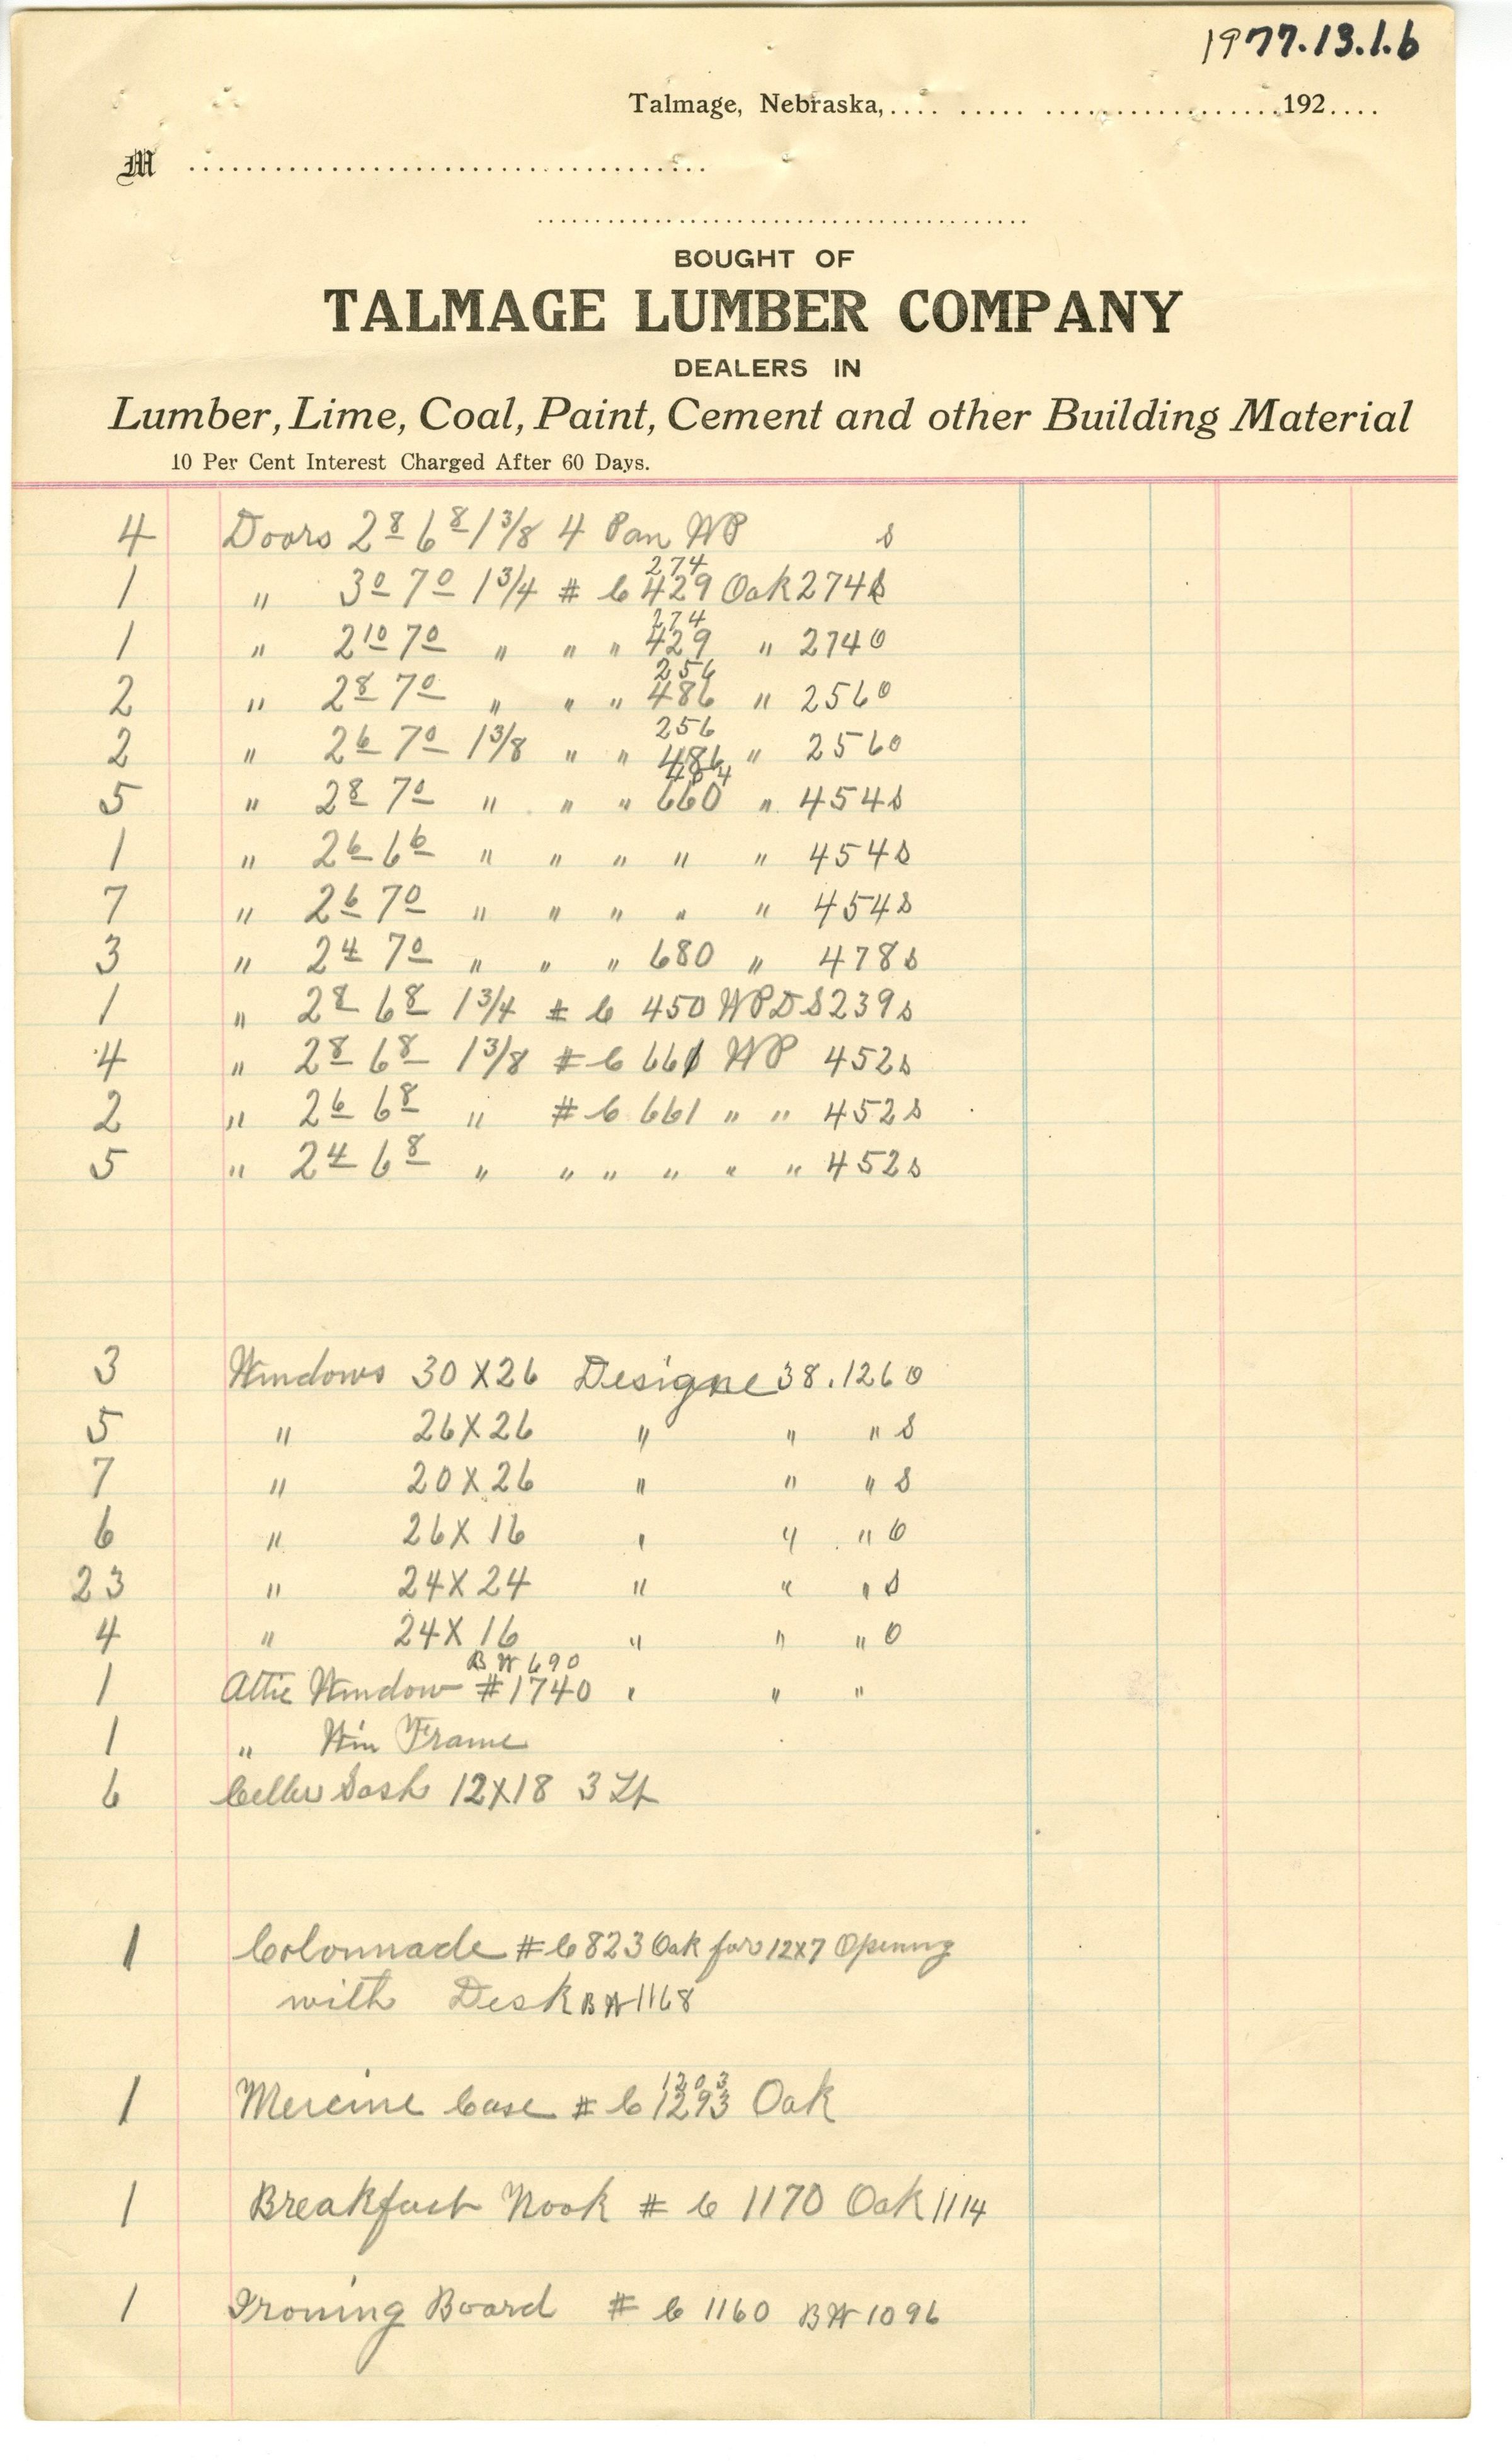 1977.13.1.6
Talmage, Nebraska,.... ..... ..................192....
M ....................................
..................................
BOUGHT OF
TALMAGE LUMBER COMPANY
DEALERS IN
Lumber, Lime, Coal, Paint, Cement and other Building Material
10 Per Cent Interest Charged After 60 Days.
4 Doors 2 8 6 8 1 3/8 4 Pan WP s
274
1 " 3 0 7 0 1 3/4 # C 429 Oak 274
274
1 " 2 10 7 0 " " " 429 " 274 0
256
2 " 2 8 7 0 " " " 486 " 256 0
256
2 " 2 6 7 0 1 3/8 " " 486 " 256 0
5 " 2 8 7 0 " " " 660 " 454 s
1 " 2 6 6 6 " " " " " 454 s
7 " 2 6 7 0 " " " " " 454 s
3 " 2 4 7 0 " " " 680 " 478 s
1 " 2 8 6 8 1 3/4 # C 450 WP DS 239 s
4 " 2 8 6 8 1 3/8 # C 661 WP 452 s
2 " 2 6 6 8 " # C 661 " " 452 s
5 " 2 4 6 8 " " " " " " 452 s
3 Windows 30 X 26 Designe 38.126 0
5 " 26 X 26 " " " s
7 " 20 X 26 " " " s
6 " 26 X 16 " " " 0
23 " 24 X 24 " " " s
4 " 24 X 16 " " " 0
BW 690
1 Attic Window #1740 " " "
1 " Win Frame
6 Celler Sash 12X18 3 Lt
1 Colonnade # C 823 Oak for 12x7 Opening
with Desk BW 1168
1203
1 Mericine Case # C 1293 Oak
1 Breakfast Nook # C 1170 Oak 1114
1 Ironing Board # C 1160 BW 1096